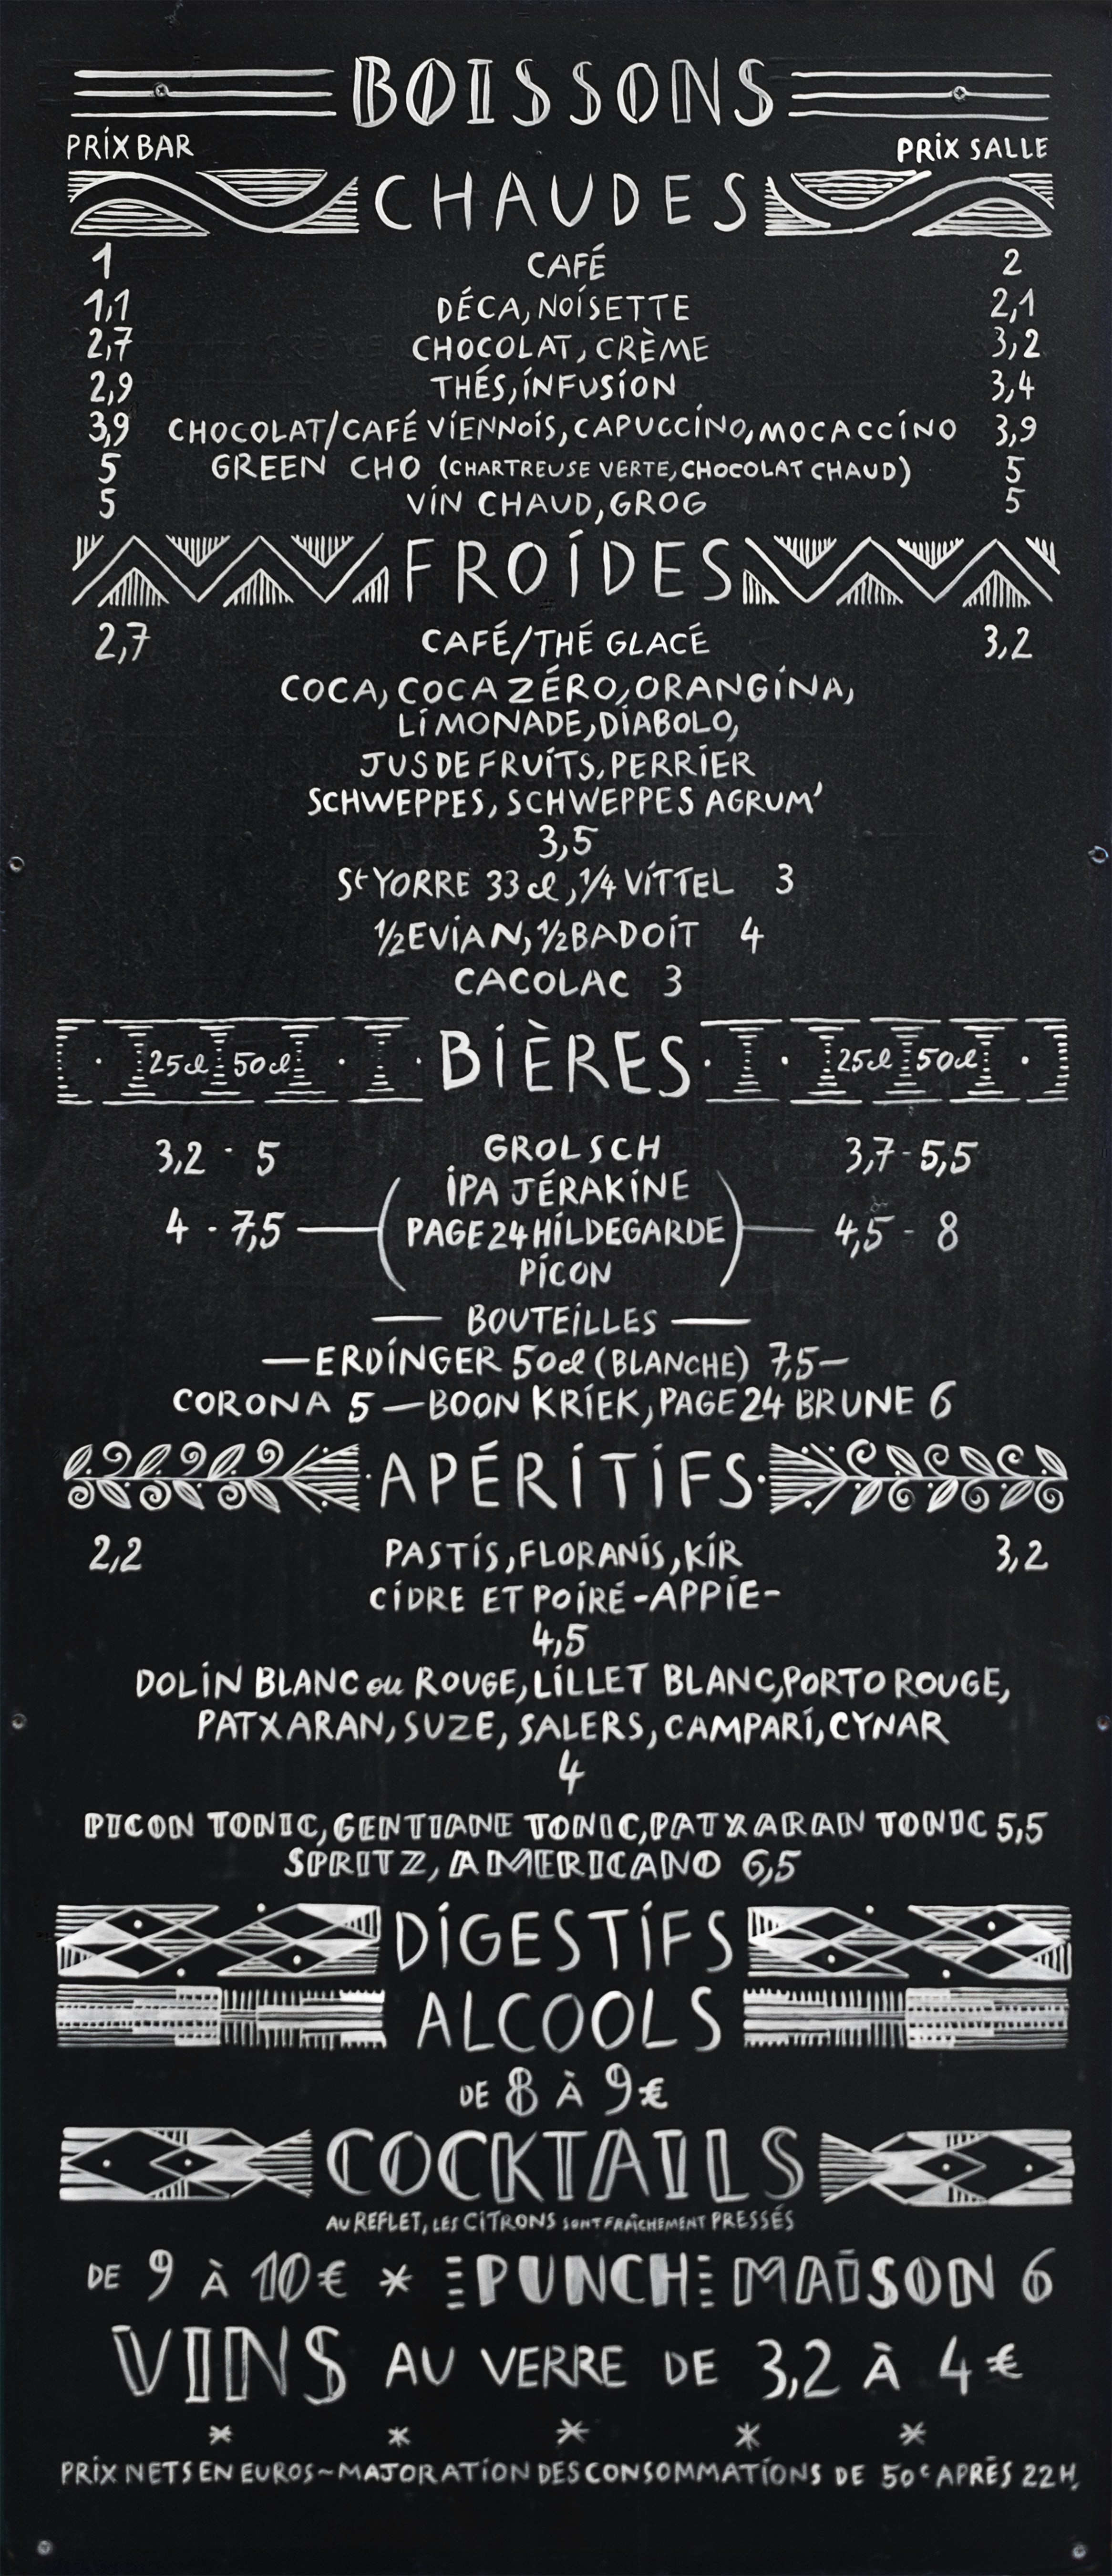 BOISSONS
PRIX BAR PRIX SALLE
CHAUDES
1 CAFÉ 2
1,1 DÉCA, NOISETTE 2,1
2,7 CHOCOLAT, CRÈME 3,2
2,9 THÉS, INFUSION 3,4
3,9 CHOCOLAT/CAFÉ VIENNOIS, CAPUCCINO, MOCACCINO 3,9
5 GREEN CHO (CHARTREUSE VERTE, CHOCOLAT CHAUD) 5
5 VIN CHAUD, GROG 5
FROIDES
2,7 CAFÉ/THÉ GLACÉ 3,2
COCA, COCA ZÉRO, ORANGINA,
LIMONADE, DIABOLO,
JUS DE FRUITS, PERRIER
SCHWEPPES, SCHWEPPES AGRUM'
3,5
St YORRE 33 cl, 1/4 VITTEL 3
1/2 EVIAN, 1/2 BADOIT 4
CACOLAC 3
25cl 50cl BIÈRES 25cl 50cl
3,2 - 5 GROLSCH 3,7 - 5,5
IPA JÉRAKINE
4 - 7,5 PAGE 24 HILDEGARDE 4,5 - 8
PICON
— BOUTEILLES —
— ERDINGER 50cl (BLANCHE) 7,5 —
CORONA 5 — BOON KRIEK, PAGE 24 BRUNE 6
APÉRITIFS
2,2 PASTIS, FLORANIS, KIR 3,2
CIDRE ET POIRÉ - APPIE -
4,5
DOLIN BLANC ou ROUGE, LILLET BLANC, PORTO ROUGE,
PATXARAN, SUZE, SALERS, CAMPARI, CYNAR
4
PICON TONIC, GENTIANE TONIC, PATXARAN TONIC 5,5
SPRITZ, AMERICANO 6,5
DIGESTIFS
ALCOOLS
DE 8 À 9€
COCKTAILS
AU REFLET, LES CITRONS SONT FRAÎCHEMENT PRESSÉS
DE 9 À 10€ * PUNCH MAISON 6
VINS AU VERRE DE 3,2 À 4€
* * * * *
PRIX NETS EN EUROS ~ MAJORATION DES CONSOMMATIONS DE 50c APRÈS 22H.